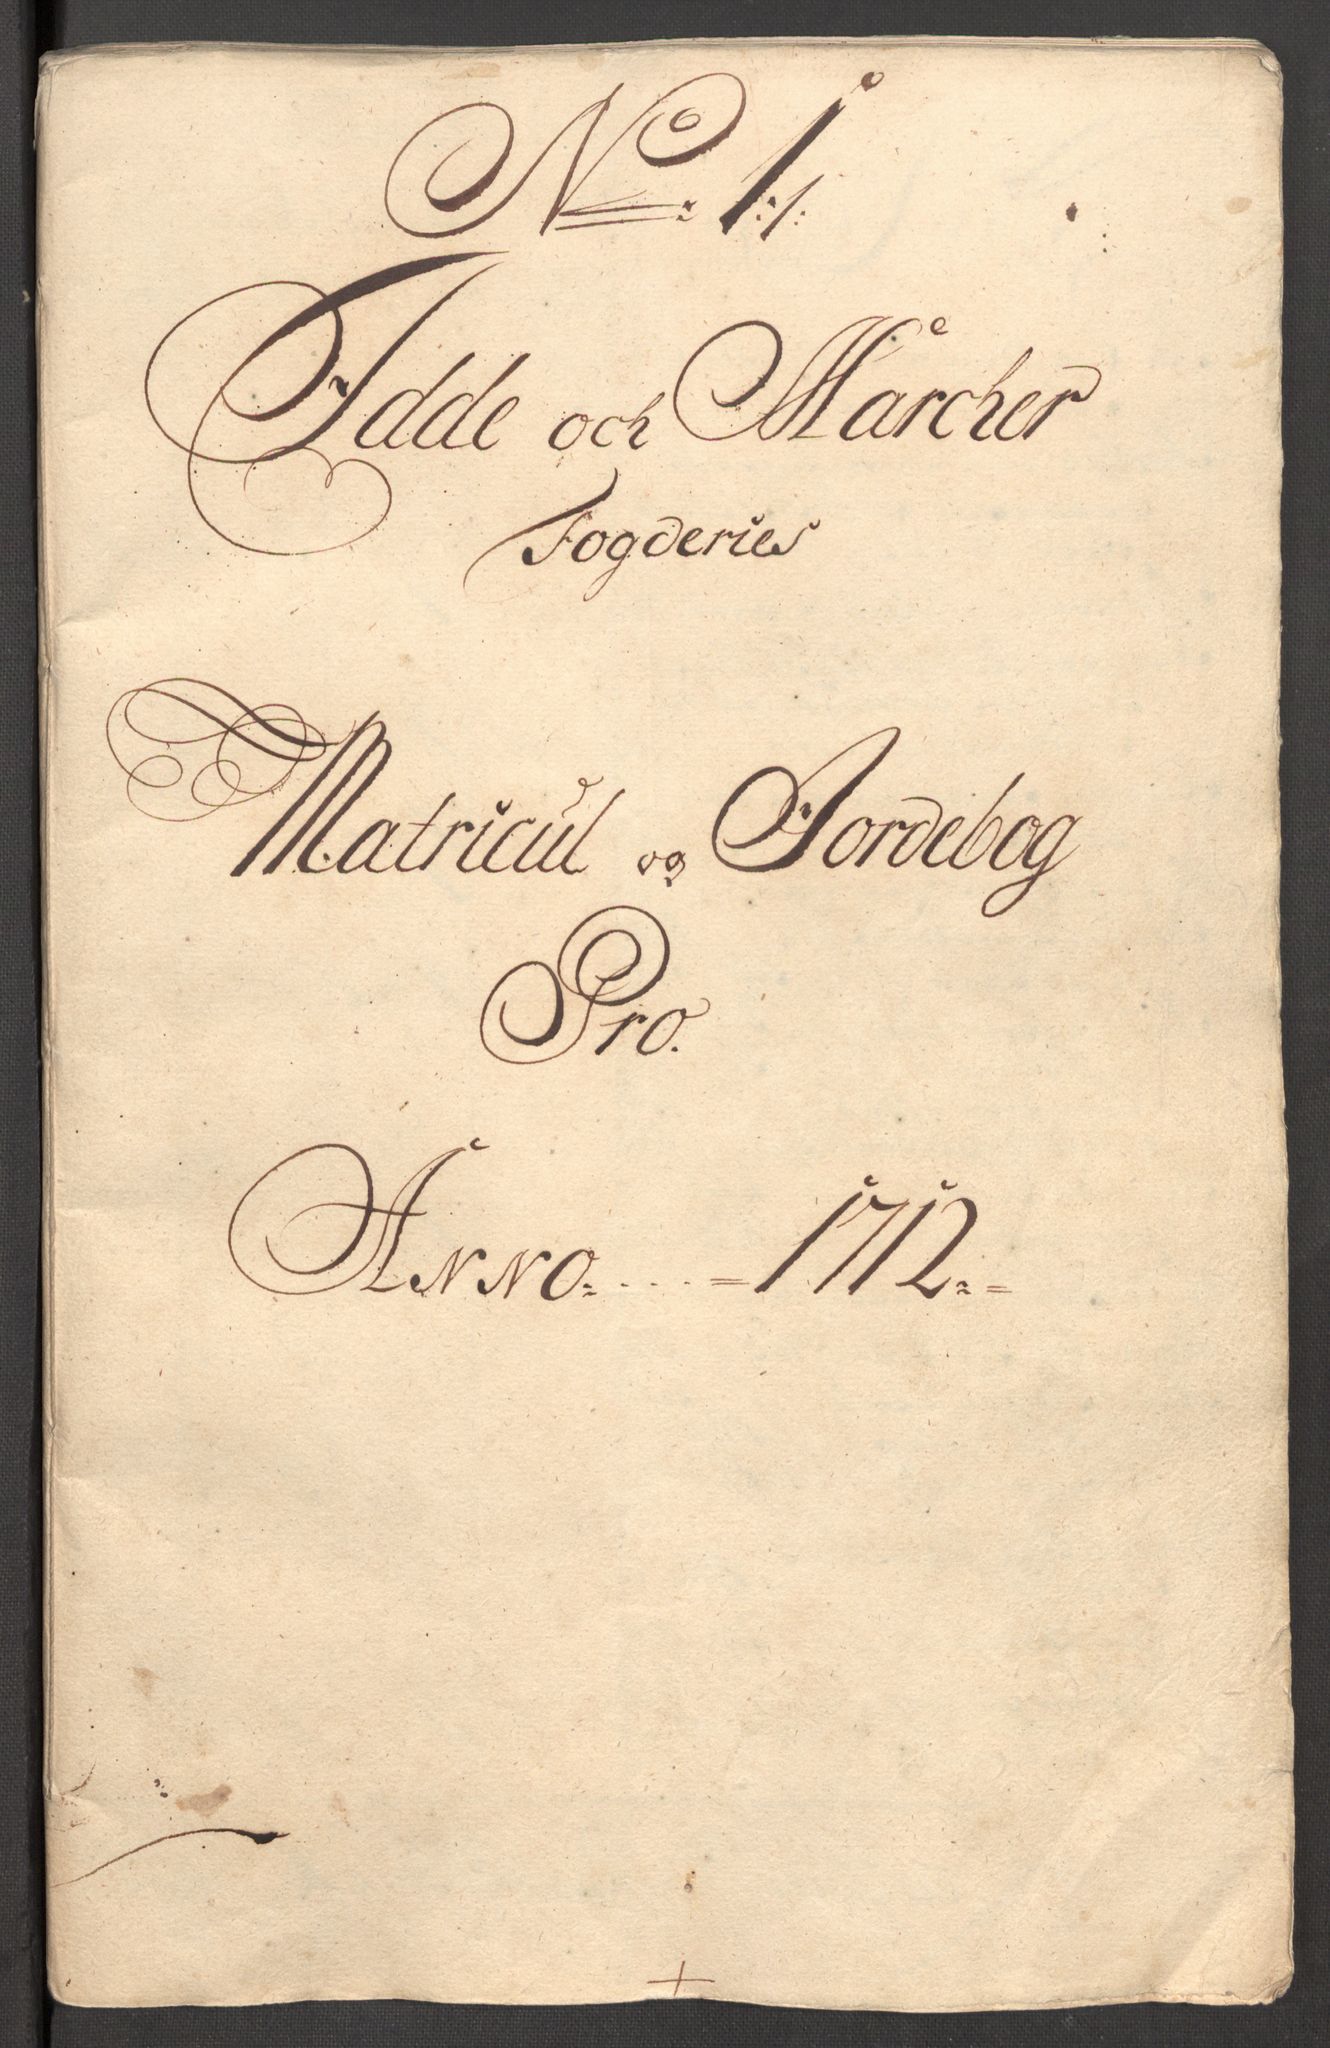 No: 1:/:
Idde och Marcher
Fogderies
Matricul og Jordebog
Pro.
Anno. . . . . = 1712. =